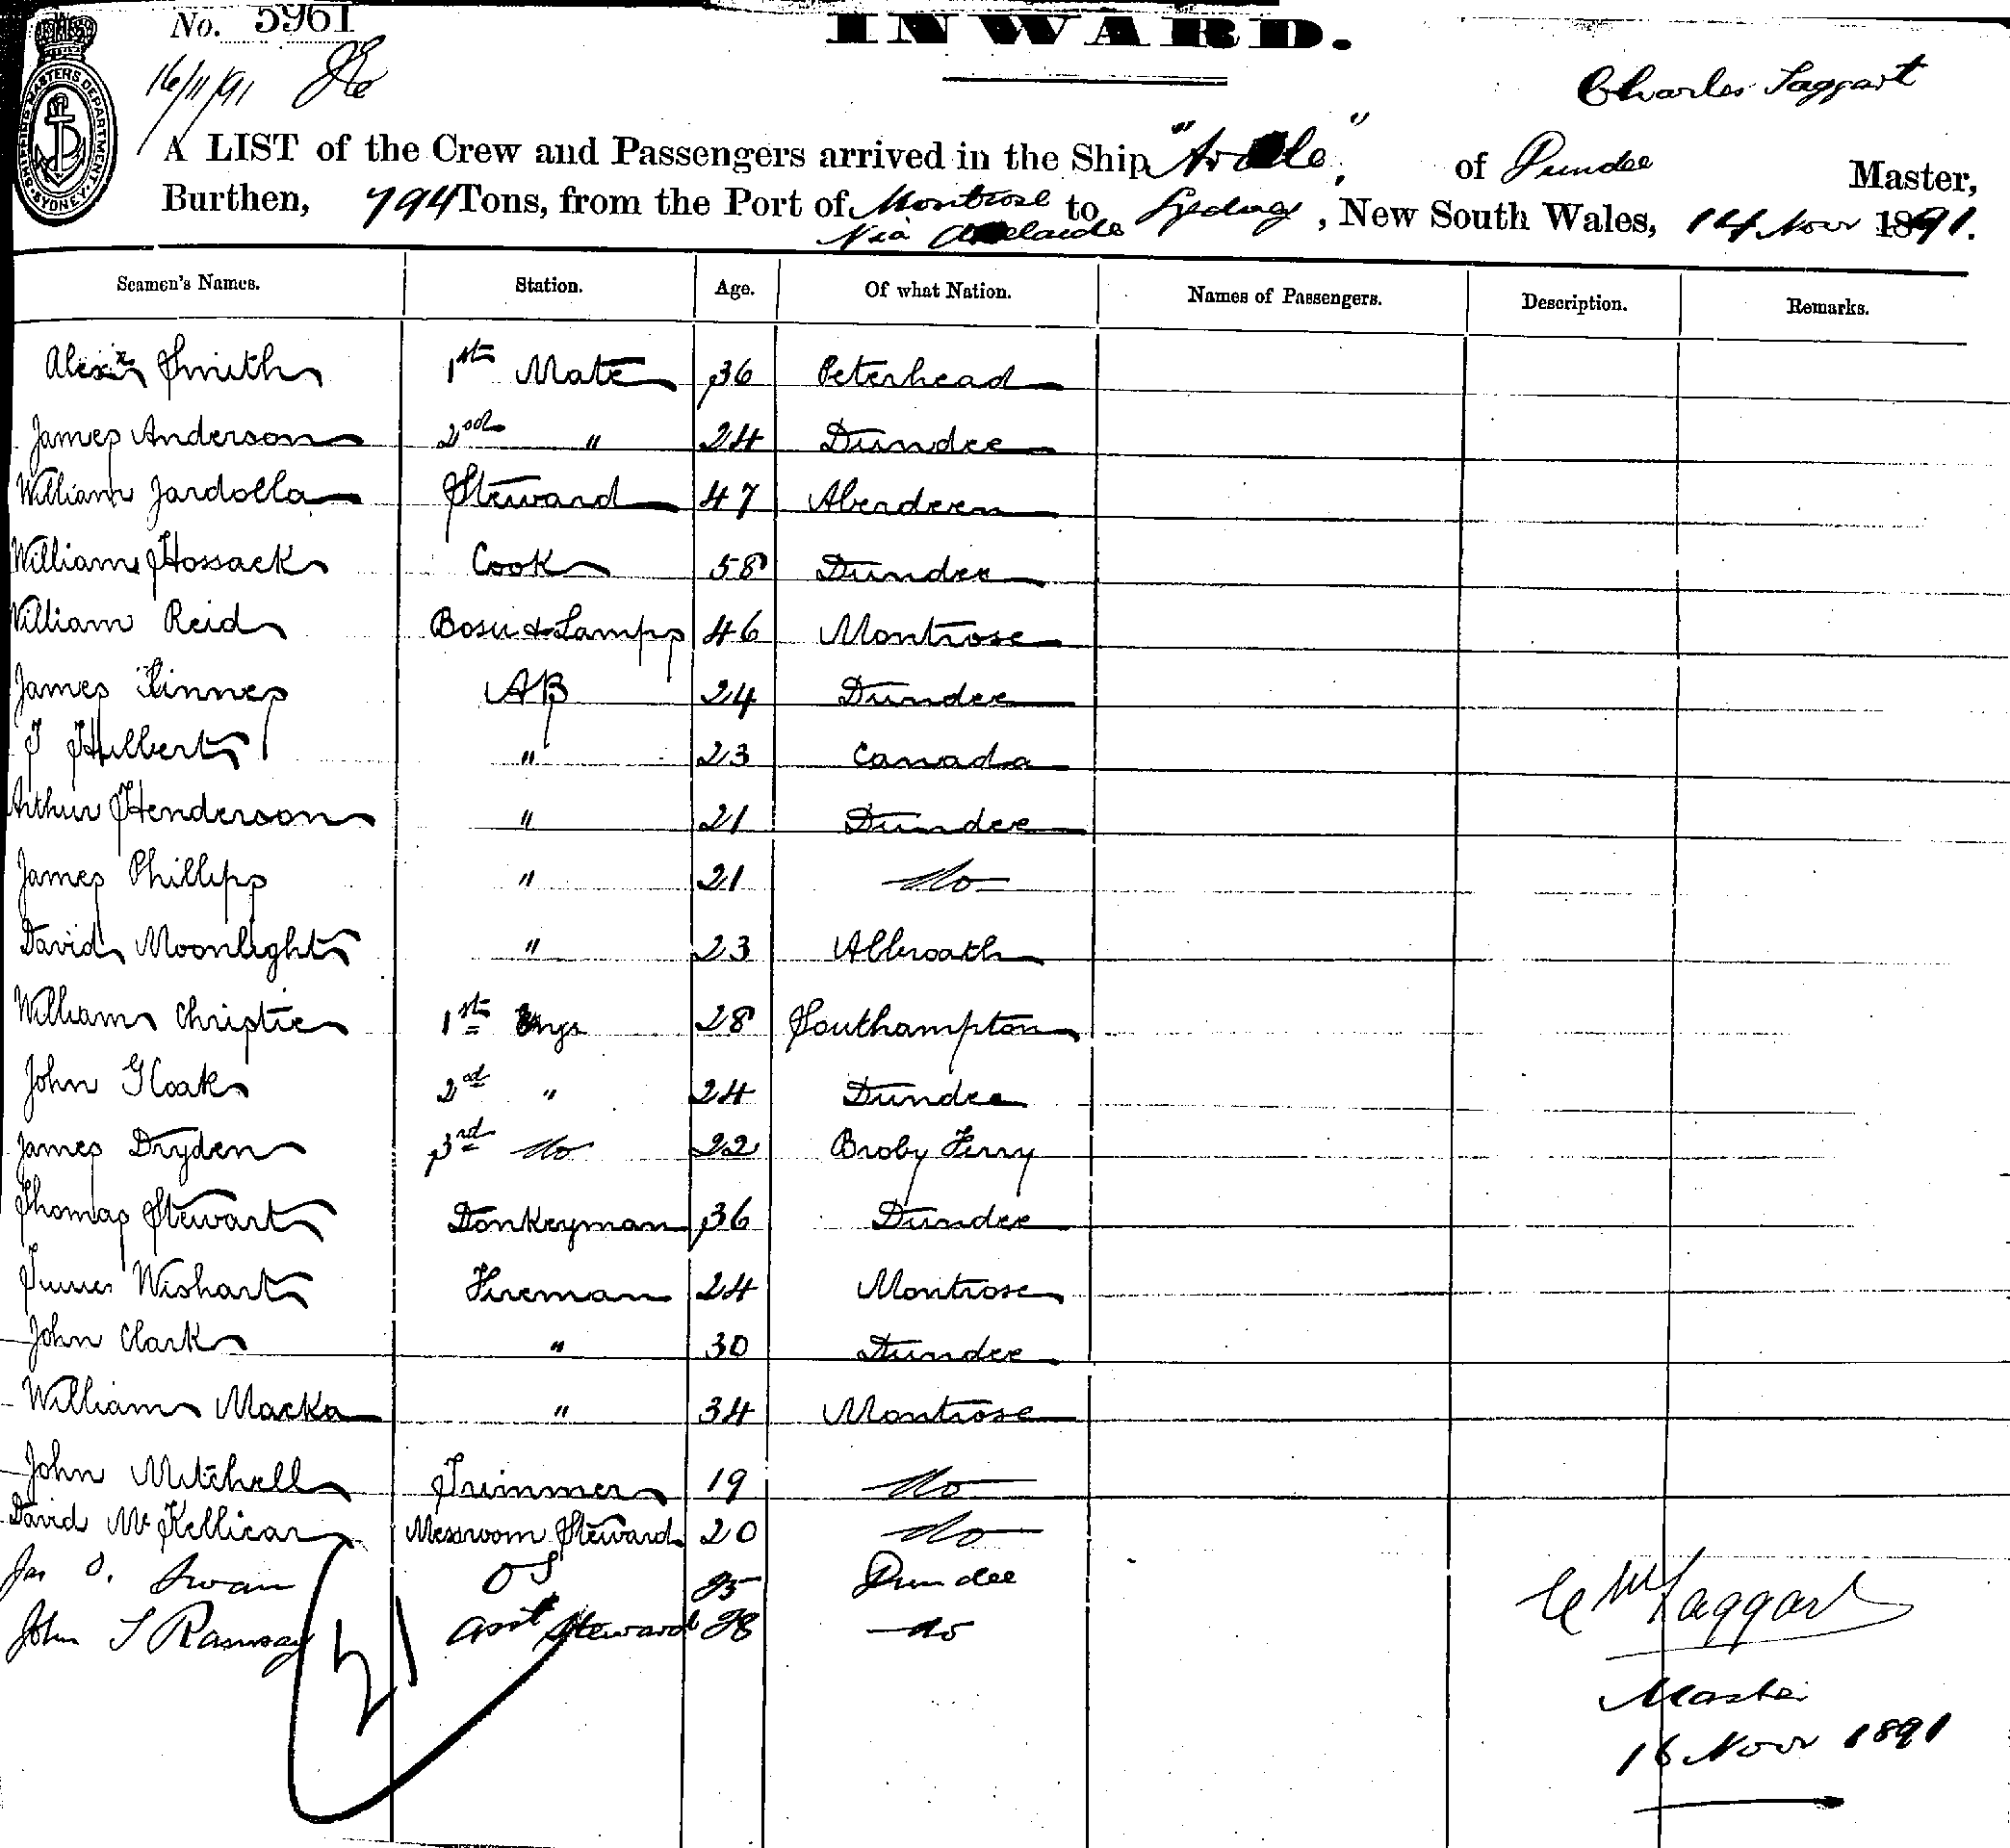 No. 5961
INWARD.
16/11/91
Charles Taggart
SHIPPING MASTERS DEPARTMENT SYDNEY
A LIST of the Crew and Passengers arrived in the Ship " " of Dundee Master,
Burthen, 794 Tons, from the Port of Montrose to Sydney, New South Wales, 14 Novr 1891.
Via Adelaide
Seamen's Names. Station. Age. Of what Nation. Names of Passengers. Description. Remarks.
Alexr Smith 1st Mate 36 Peterhead
James Anderson 2nd " 24 Dundee
William Jardolla Steward 47 Aberdeen
William Hossack Cook 58 Dundee
William Reid Bosn & Lamps 46 Montrose
James Kinnes AB 24 Dundee
J Hulbert " 23 Canada
Arthur Henderson " 21 Dundee
James Phillips " 21 do
David Moonlight " 23 Abbroath
William Christie 1st Engr 28 Southampton
John G Coak 2nd " 24 Dundee
James Dryden 3rd do 22 Broby Ferry
Thomas Stewart Donkeyman 36 Dundee
James Wishart Fireman 24 Montrose
John Clark " 30 Dundee
William Macka " 34 Montrose
John Mitchell Trimmer 19 do
David McKellican Messroom Steward 20 do
Jas O. Swan OS 25 Dundee
John S Ramsay Asst Steward 28 do
21
C McTaggart
Master
16 Novr 1891